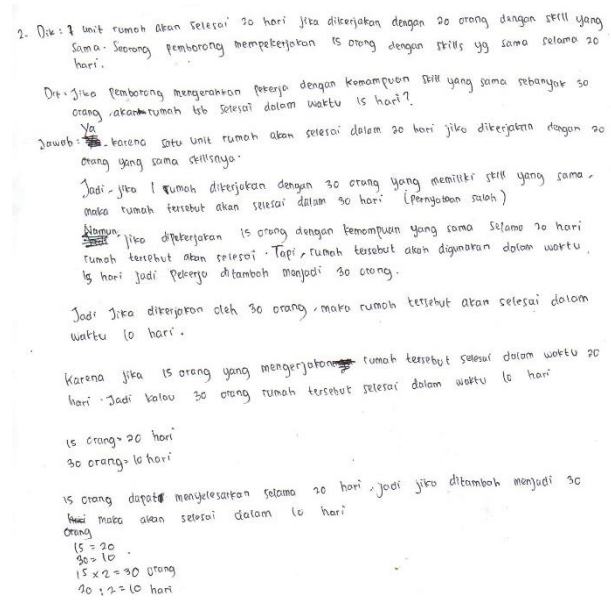 2. Dik : 1 unit rumah akan selesai 20 hari jika dikerjakan dengan 20 orang dengan skill yang
sama. Seorang pemborong mempekerjakan 15 orang dengan skills yg sama selama 20
hari.
Dit : Jika pemborong mengerahkan pekerja dengan kemampuan skill yang sama sebanyak 30
orang, akan rumah tsb selesai dalam waktu 15 hari?
Ya
Jawab : - karena satu unit rumah akan selesai dalam 20 hari jika dikerjakan dengan 20
orang yang sama skillsnya.
Jadi, jika 1 rumah dikerjakan dengan 30 orang yang memiliki skill yang sama,
maka rumah tersebut akan selesai dalam 30 hari (pernyataan salah)
Namun, jika dipekerjakan 15 orang dengan kemampuan yang sama selama 20 hari
rumah tersebut akan selesai. Tapi, rumah tersebut akan digunakan dalam waktu
15 hari jadi pekerja ditambah menjadi 30 orang.
Jadi jika dikerjakan oleh 30 orang, maka rumah tersebut akan selesai dalam
waktu 10 hari.
Karena jika 15 orang yang mengerjakan rumah tersebut selesai dalam waktu 20
hari. Jadi kalau 30 orang rumah tersebut selesai dalam waktu 10 hari
15 orang = 20 hari
30 orang = 10 hari
15 orang dapat menyelesaikan selama 20 hari, jadi jika ditambah menjadi 30
maka akan selesai dalam 10 hari
orang
15 = 20
30 = 10 .
15 x 2 = 30 orang
20 : 2 = 10 hari